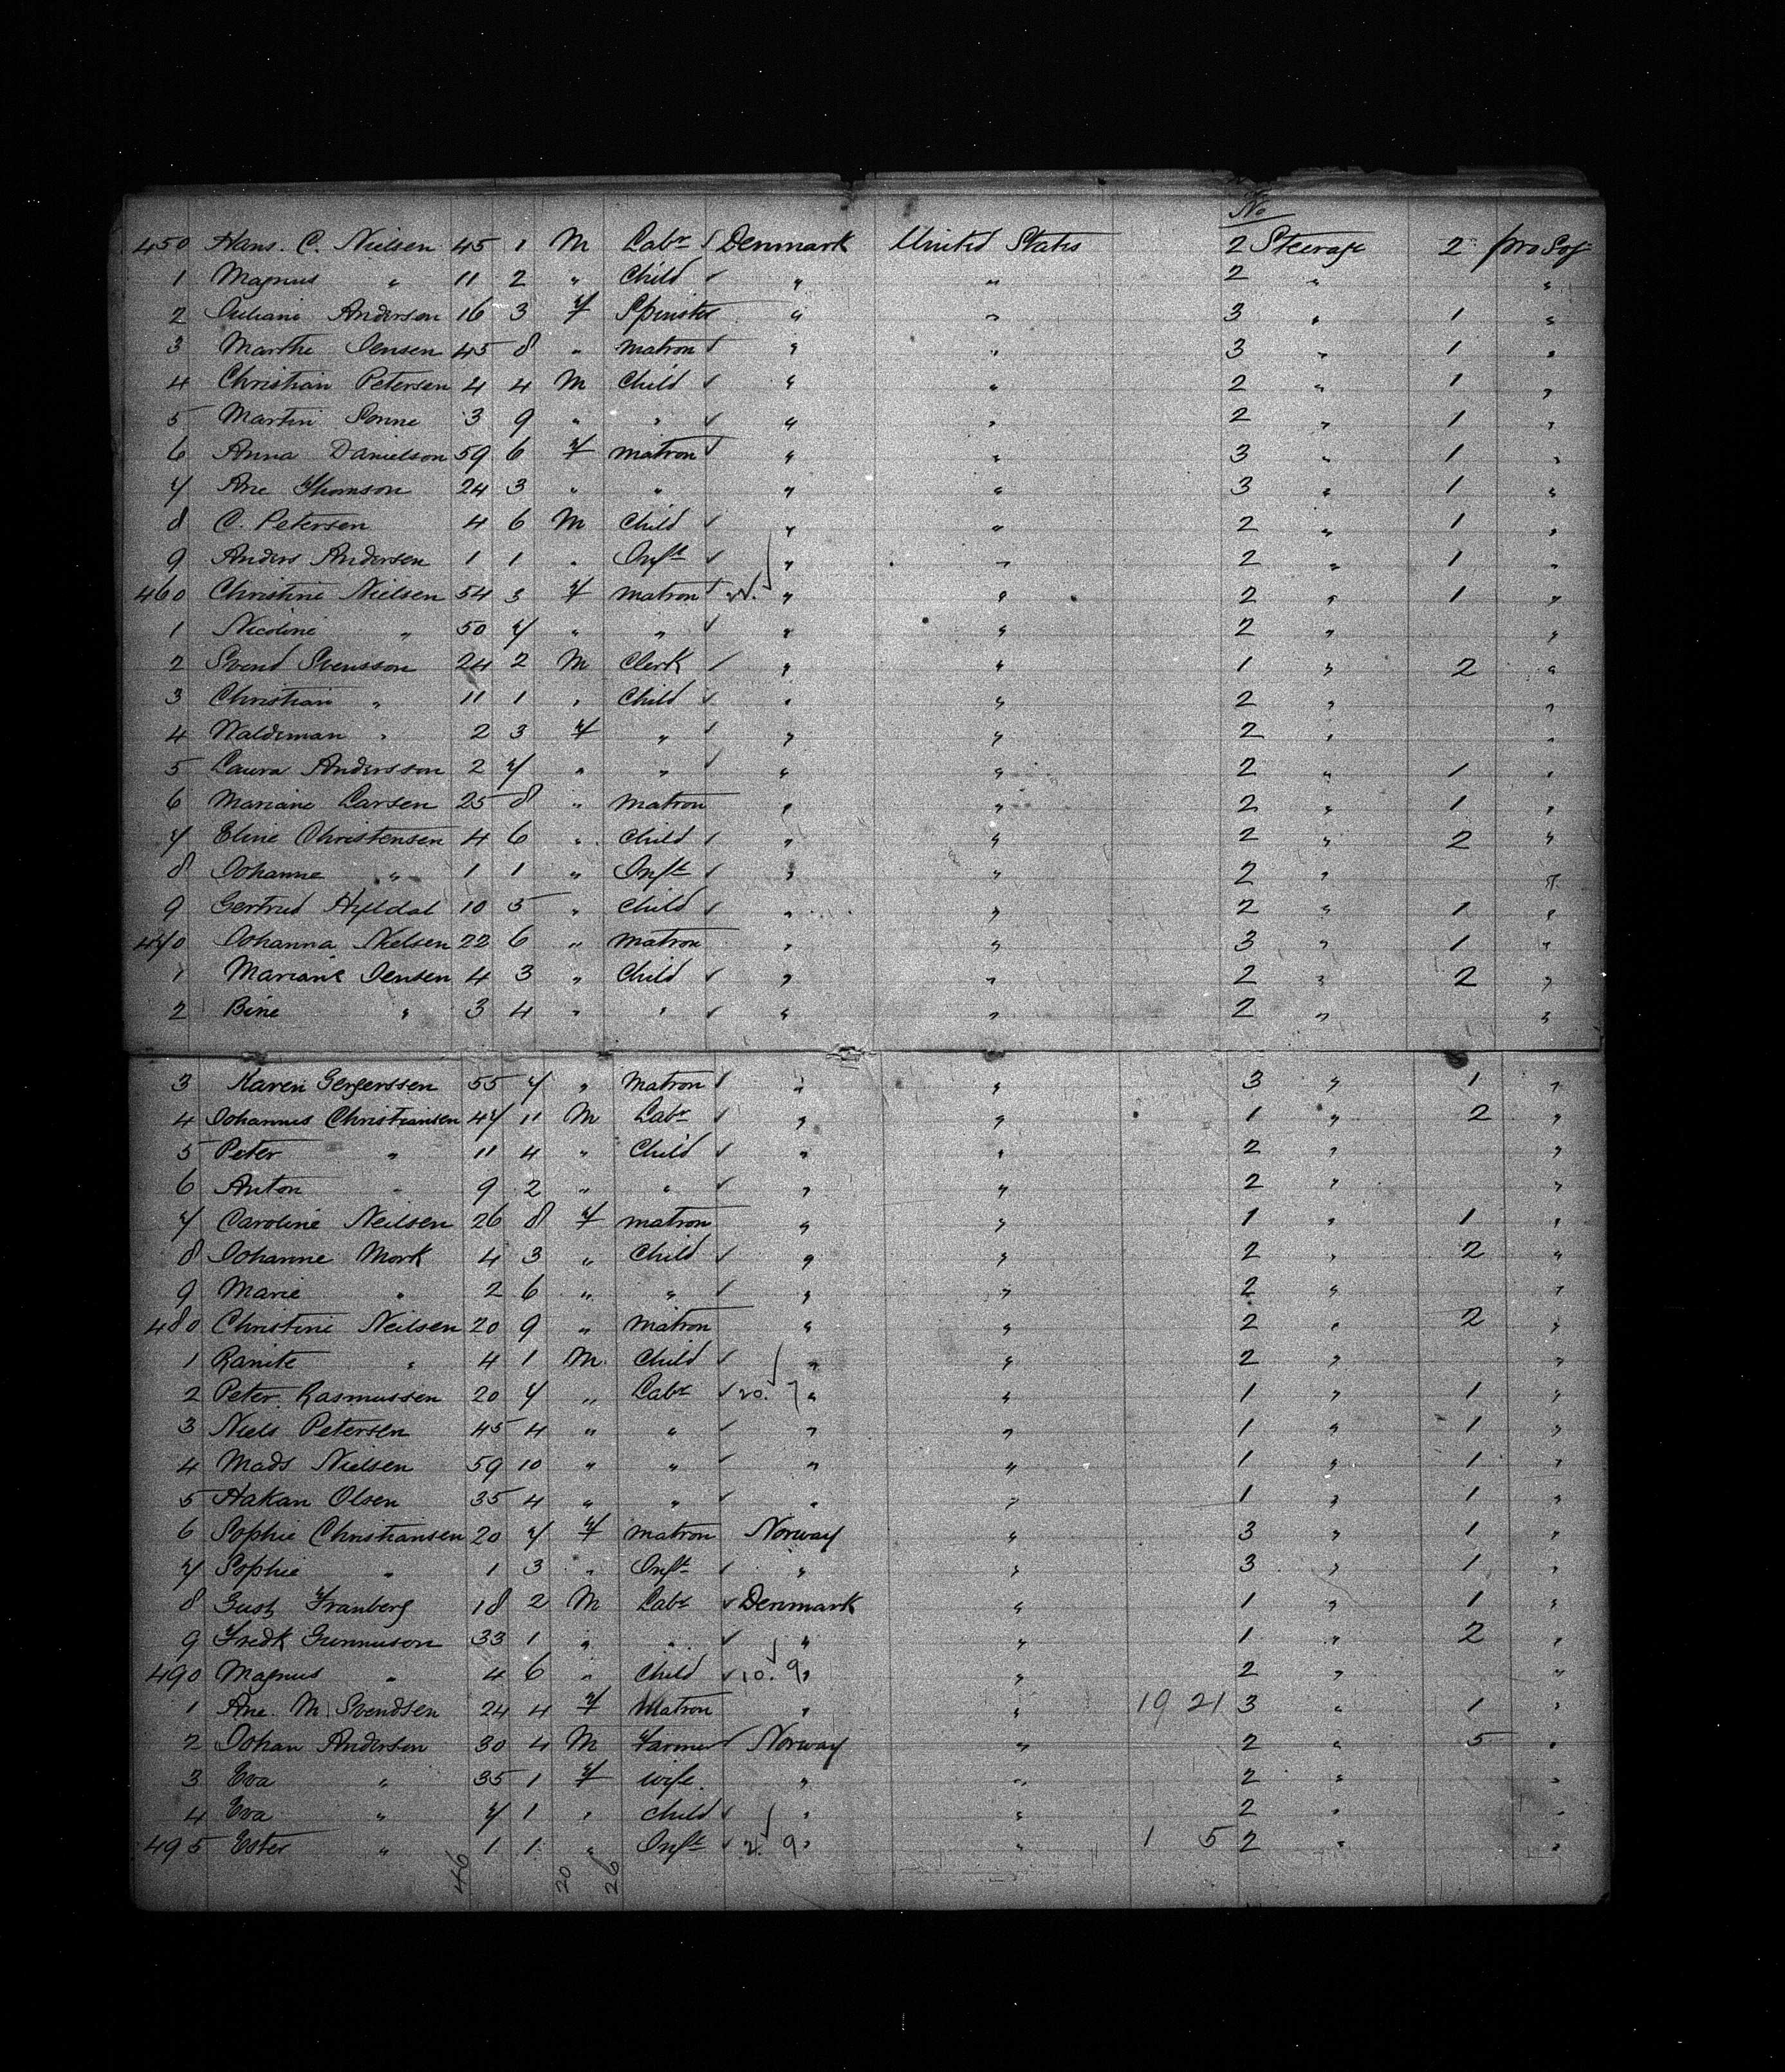 No
450 Hans. C. Nielsen 45 1 M Labr ✓ Denmark United States 2 Steerage 2 pro Soj
1 Magnus " 11 2 " Child ✓ " " 2 " "
2 Juliane Anderson 16 3 F Spinster " " 3 " 1 "
3 Marthe Jensen 45 8 " matron ✓ " " 3 " 1 "
4 Christian Petersen 4 4 M Child ✓ " " 2 " 1 "
5 Martin Sonne 3 9 " " ✓ " " 2 " 1 "
6 Anna Danielson 59 6 F matron ✓ " " 3 " 1 "
7 Ane Thomson 24 3 " " " " 3 " 1 "
8 C. Petersen 4 6 M Child ✓ " " 2 " 1 "
9 Anders Andersen 1 1 " Inft ✓ " " 2 " 1 "
460 Christine Nielsen 54 3 F matron ✓ " " 2 " 1 "
1 Nicoline " 50 7 " " ✓ " " 2 " "
2 Svend Svensson 24 2 M Clerk ✓ " " 1 " 2 "
3 Christian " 11 1 " Child ✓ " " 2 " "
4 Waldeman " 2 3 F " ✓ " " 2 " "
5 Laura Andersson 2 7 " " ✓ " " 2 " 1 "
6 Mariane Larsen 25 8 " matron " " 2 " 1 "
7 Eline Christensen 4 6 " Child ✓ " " 2 " 2 "
8 Johanne " 1 1 " Inft ✓ " " 2 " "
9 Gertrud Hyldal 10 5 " Child ✓ " " 2 " 1 "
470 Johanna Nielsen 22 6 " matron " " 3 " 1 "
1 Mariane Jensen 4 3 " Child ✓ " " 2 " 2 "
2 Bine " 3 4 " " ✓ " " 2 " "
3 Karen Gergerssen 55 7 " Matron ✓ " " 3 " 1 "
4 Johannes Christiansen 47 11 M Labr ✓ " " 1 " 2 "
5 Peter " 11 4 " Child ✓ " " 2 " "
6 Anton " 9 2 " " ✓ " " 2 " "
7 Caroline Neilsen 26 8 F matron " " 1 " 1 "
8 Johanne Mork 4 3 " Child ✓ " " 2 " 2 "
9 Marie " 2 6 " " ✓ " " 2 " "
480 Christine Neilsen 20 9 " matron " " 2 " 2 "
1 Ranite " 4 1 M. Child ✓ " " 2 " "
2 Peter Rasmussen 20 7 " Labr ✓ 20. 7 " " 1 " 1 "
3 Niels Petersen 45 4 " " ✓ " " 1 " 1 "
4 Mads Nielsen 59 10 " " ✓ " " 1 " 1 "
5 Hakan Olsen 35 4 " " ✓ " " 1 " 1 "
6 Sophie Christiansen 20 7 F matron Norway " 3 " 1 "
7 Sophie " 1 3 " Inft ✓ " " 3 " 1 "
8 Gust Franberg 18 2 M Labr ✓ Denmark " 1 " 1 "
9 Fredk Gunnuson 33 1 " " ✓ " " 1 " 2 "
490 Magnus " 4 6 " Child ✓ 10. 9 " " 2 " "
1 Ane. M. Svendsen 24 4 F Matron " " 19 21 3 " 1 "
2 Johan Andersen 30 4 M Farmer ✓ Norway " 2 " 5 "
3 Eva " 35 1 F wife. " " 2 " "
4 Eva " 7 1 " child ✓ " " 2 " "
495 Ester " 1 1 " Inft ✓ 2. 9 " " 1 5 2 " "
46 20 26